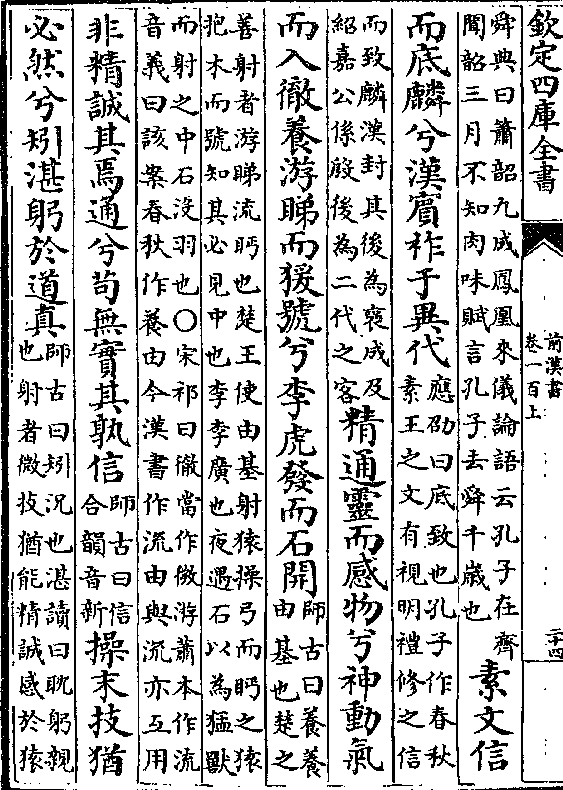 欽定四庫全書
前漢書
卷一百上
二十四
舜典曰簫韶九成鳳凰來儀論語云孔子在齊
聞韶三月不知肉味賦言孔子去舜千嵗也
素文信
而底麟兮漢賔祚于異代
應劭曰底致也孔子作春秋
素王之文有視明禮修之信
而致麟漢封其後為褒成及
紹嘉公係殷後為二代之客
精通靈而感物兮神動氣
而入微養游睇而猨號兮李虎發而石開
師古曰養養
由基也楚之
善射者游睇流眄也楚王使由基射猿操弓而眄之猿
抱木而號知其必見中也李李廣也夜遇石以為猛獸
而射之中石没羽也〇宋祁曰徹當作微游蕭本作流
音義曰該案春秋作養由今漢書作流由與流亦互用
非精誠其焉通兮茍無實其孰信
師古曰信
合韻音新
操末技猶
必然兮矧湛躬於道真
師古曰矧況也湛讀曰耽躬親
也射者微技猶能精誠感於猿